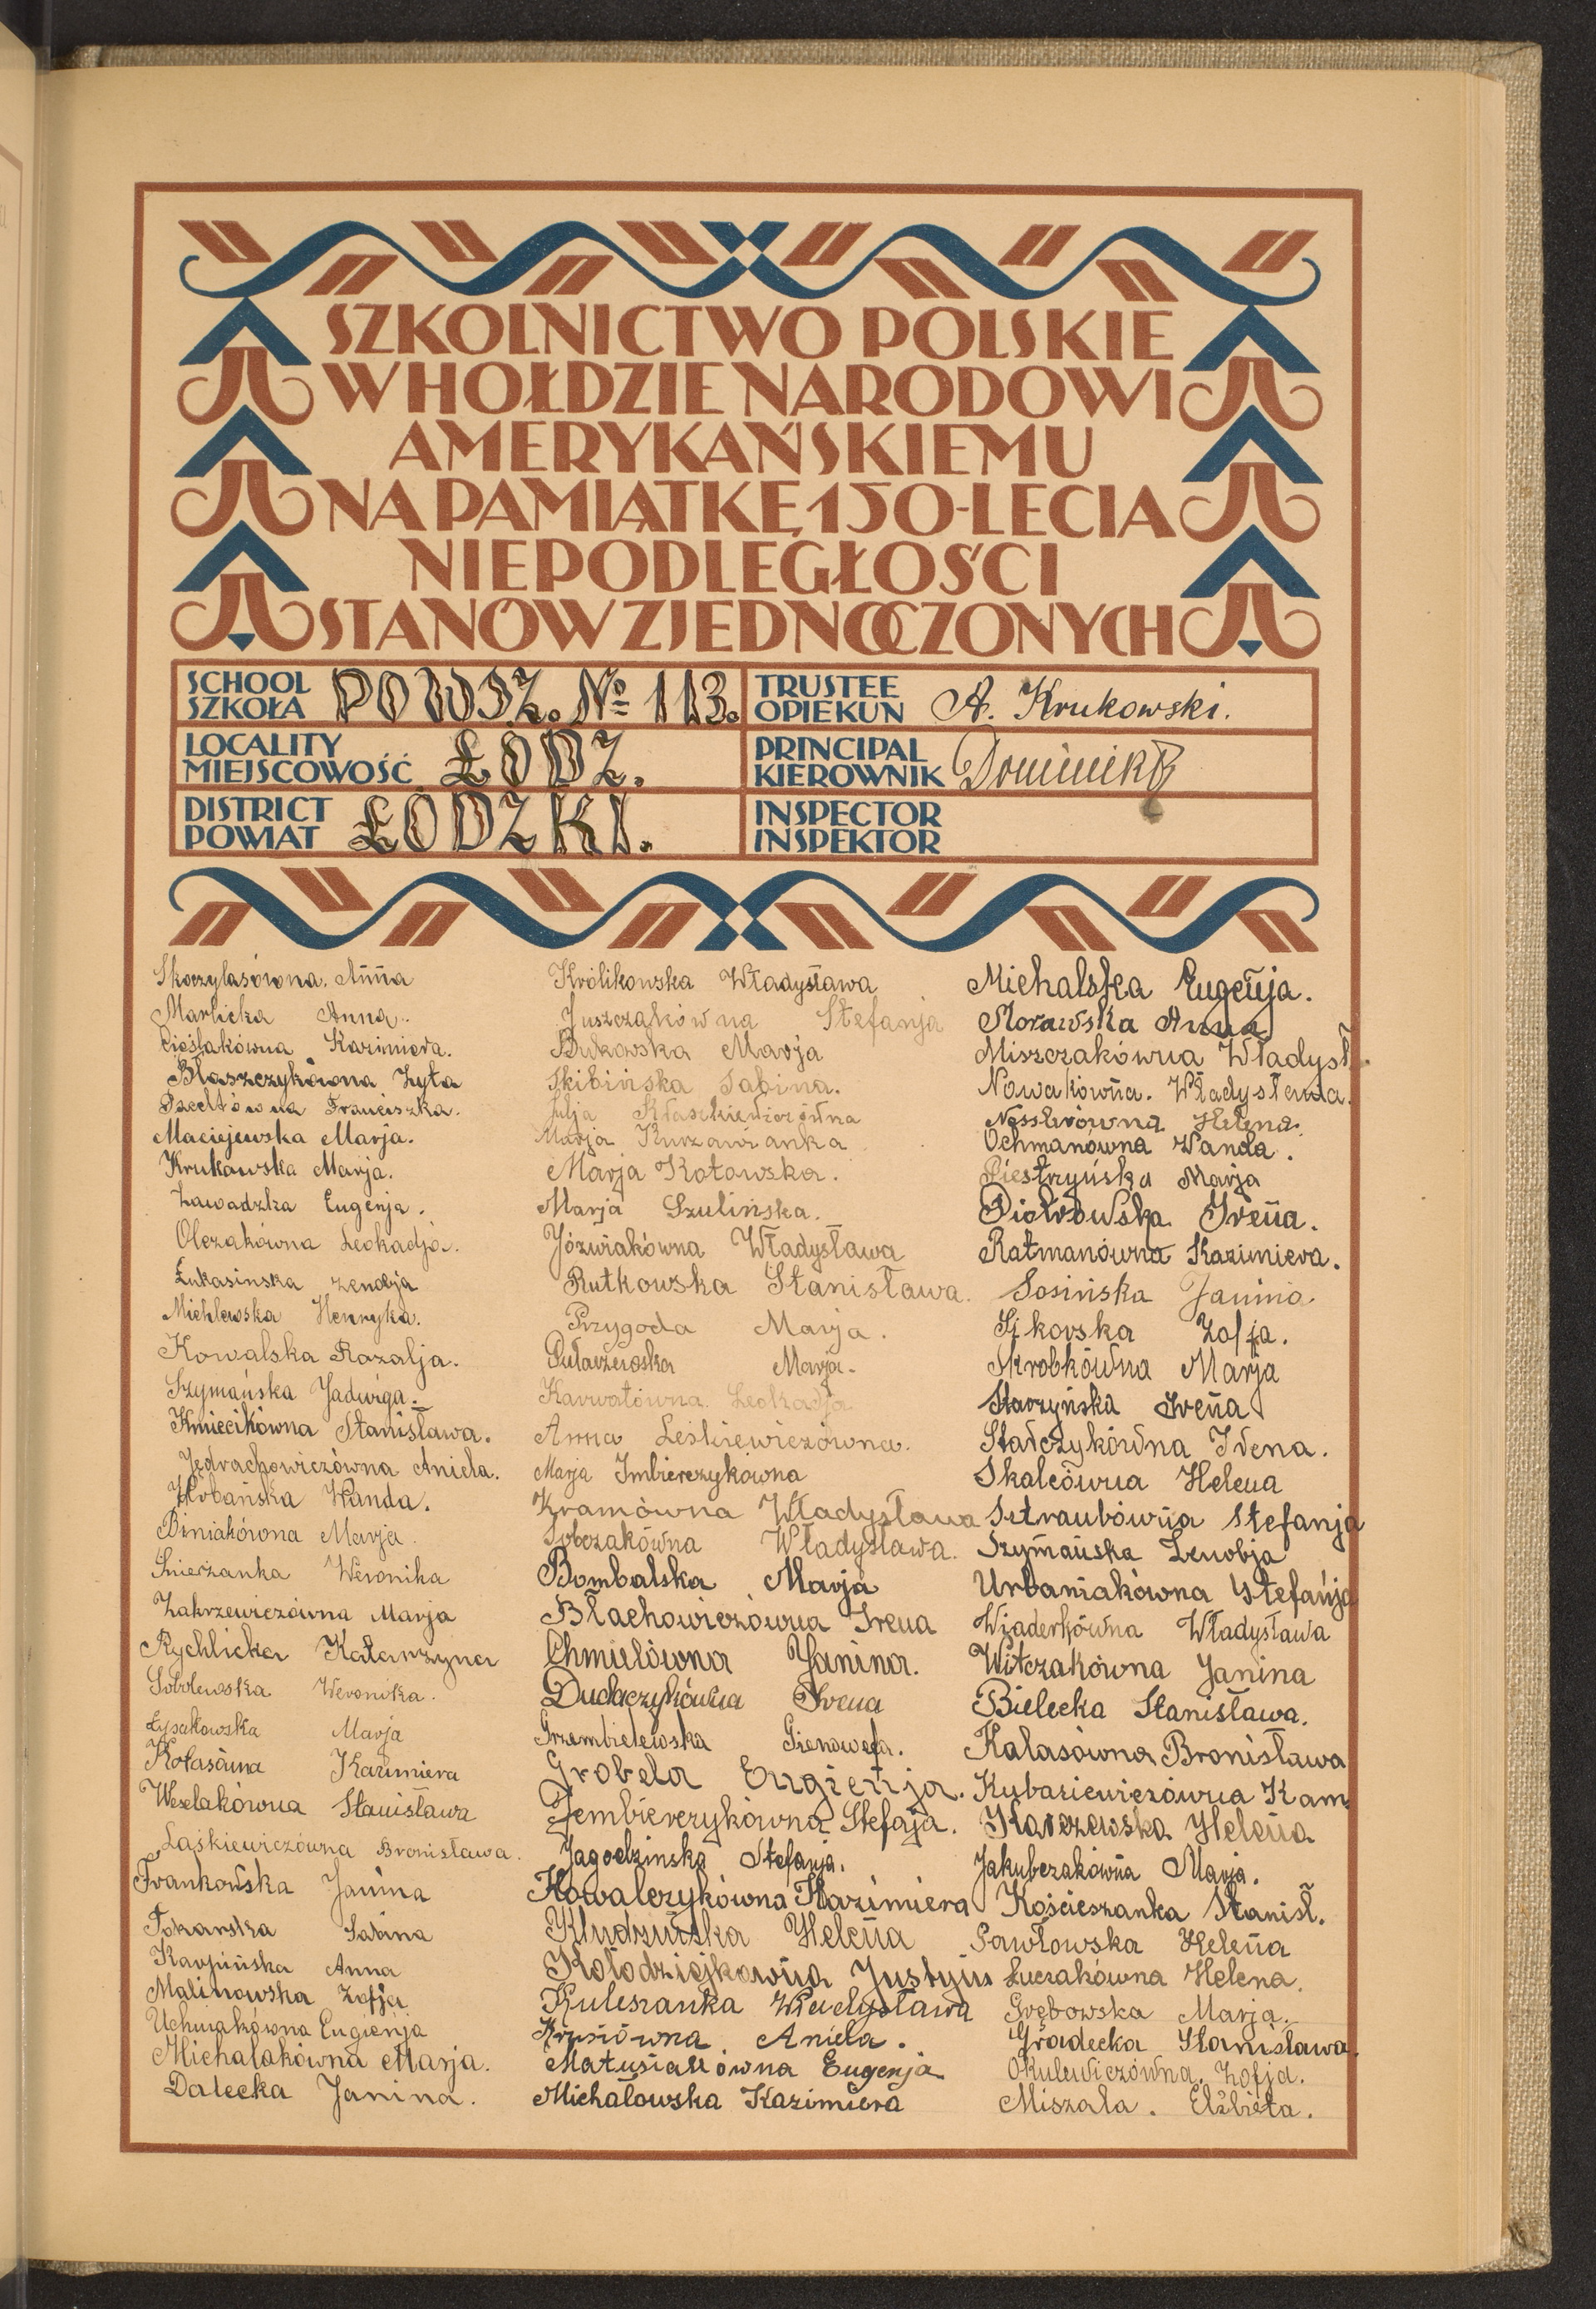 SZKOLNICTWO POLSKIE
W HOŁDZIE NARODOWI
AMERYKAŃSKIEMU
NA PAMIĄTKĘ 150-LECIA
NIEPODLEGŁOŚCI
STANÓW ZJEDNOCZONYCH
SCHOOL
SZKOŁA POWSZ. № 113.
TRUSTEE
OPIEKUN A. Krukowski.
LOCALITY
MIEJSCOWOŚĆ ŁÓDZ.
PRINCIPAL
KIEROWNIK Dominik
DISTRICT
POWIAT ŁÓDZKI.
INSPECTOR
INSPEKTOR
Skoczylasówna. Anna
Marlicka Anna.
Cieślakówna Kazimiera.
Błaszczykówna Zyta
Franciszka.
Maciejewska Marja.
Krukowska Marja.
Zawadzka Eugenja.
Olczakówna Leokadja.
Łukasinska Zenobja
Michlewska Henryka.
Kowalska Rozalja.
Szymańska Jadwiga.
Kmiecikówna Stanisława.
Jędrachowiczówna Aniela.
Urbańska Wanda.
Biniakówna Marja.
Snieżanka Weronika
Zakrzewiczówna Marja
Rychlicka Katarzyna
Sobolewska Weronika.
Łysakowska Marja
Kołasówna Kazimiera
Weselakówna Stanisława
Laśkiewiczówna Bronisława.
Frankowska Janina
Tokarska Sabina
Karpińska Anna
Malinowska Zofja
Uchniakówna Eugienja
Michalakówna Marja.
Dalecka Janina.
Królikowska Władysława
Juszczakówna Stefanja
Bukowska Marja
Skibińska Sabina.
Julja
Marja Kurzawianka
Marja Kotowska.
Marja Szulińska.
Józwiakówna Władysława
Rutkowska Stanisława.
Przygoda Marja.
Marja.
Karwatówna Leokadja
Anna Leśkiewiczówna.
Marja Imbierczykówna
Kramówna Władysława
Sobczakówna Władysława.
Bombalska Marja
Błachowiczówna Irena
Chmielówna Janina.
Dudaczykówna Irena
Grzembielewska Gienowefa.
Grobela Eugienja.
Jembierczykówna Stefaja.
Jagodzinska Stefanja.
Kowalczykówna Kazimiera
Kludzińska Helena
Kołodziejkowna Justyn
Kuleszanka Władysława
Krusiówna Aniela.
Matusiakówna Eugenja
Michałowska Kazimiera
Michalska Eugenja.
Morawska Anna
Miszczakówna Władysł.
Nowakówna. Władysława.
Nesslerówna Helena.
Ochmanówna Wanda.
Piestrzyńska Marja
Piotrowska Irena.
Ratmanówna Kazimiera.
Sosińska Janina.
Sikorska Zofja.
Skrobkówna Marja
Starzyńska Irena
Stańczykówna Irena.
Skalcówna Helena
Sztraubówna Stefanja
Szymańska Zenobja
Urbaniakówna Stefanja
Wiaderkówna Władysława
Witczakówna Janina
Bielecka Stanisława.
Kalasówna Bronisława
Kubasiewiczówna Kam.
Karczewska Helena
Jakubczakówna Marja.
Kościeszanka Stanisł.
Pawłowska Helena
Łuczakówna Helena.
Grębowska Marja.
Gradecka Stanisława.
Okulewiczówna. Zofja.
Miszala. Elżbieta.